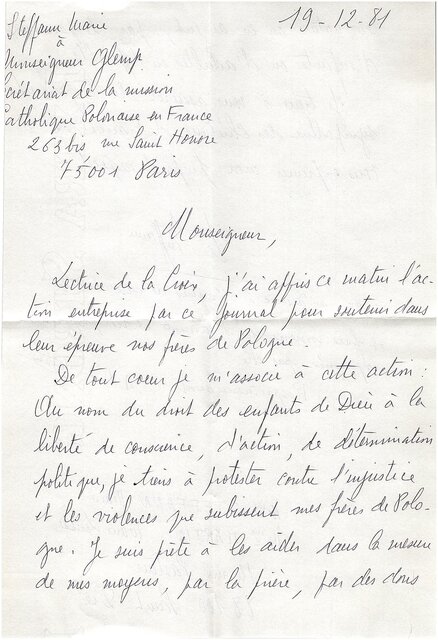 Steffann Marie
19-12-81
à
Monseigneur Glemp
Secrétariat de la mission
Catholique Polonaise en France
263 bis rue Saint Honoré
75001 Paris
Monseigneur,
Lectrice de la Croix, j'ai appris ce matin l'ac-
tion entreprise par ce journal pour soutenir dans
leur épreuve nos frères de Pologne.
De tout coeur je m'associe à cette action :
Au nom du droit des enfants de Dieu à la
liberté de conscience, d'action, de détermination
politique, je tiens à protester contre l'injustice
et les violences que subissent mes frères de Polo-
gne. Je suis prête à les aider dans la mesure
de mes moyens, par la prière, par des dons